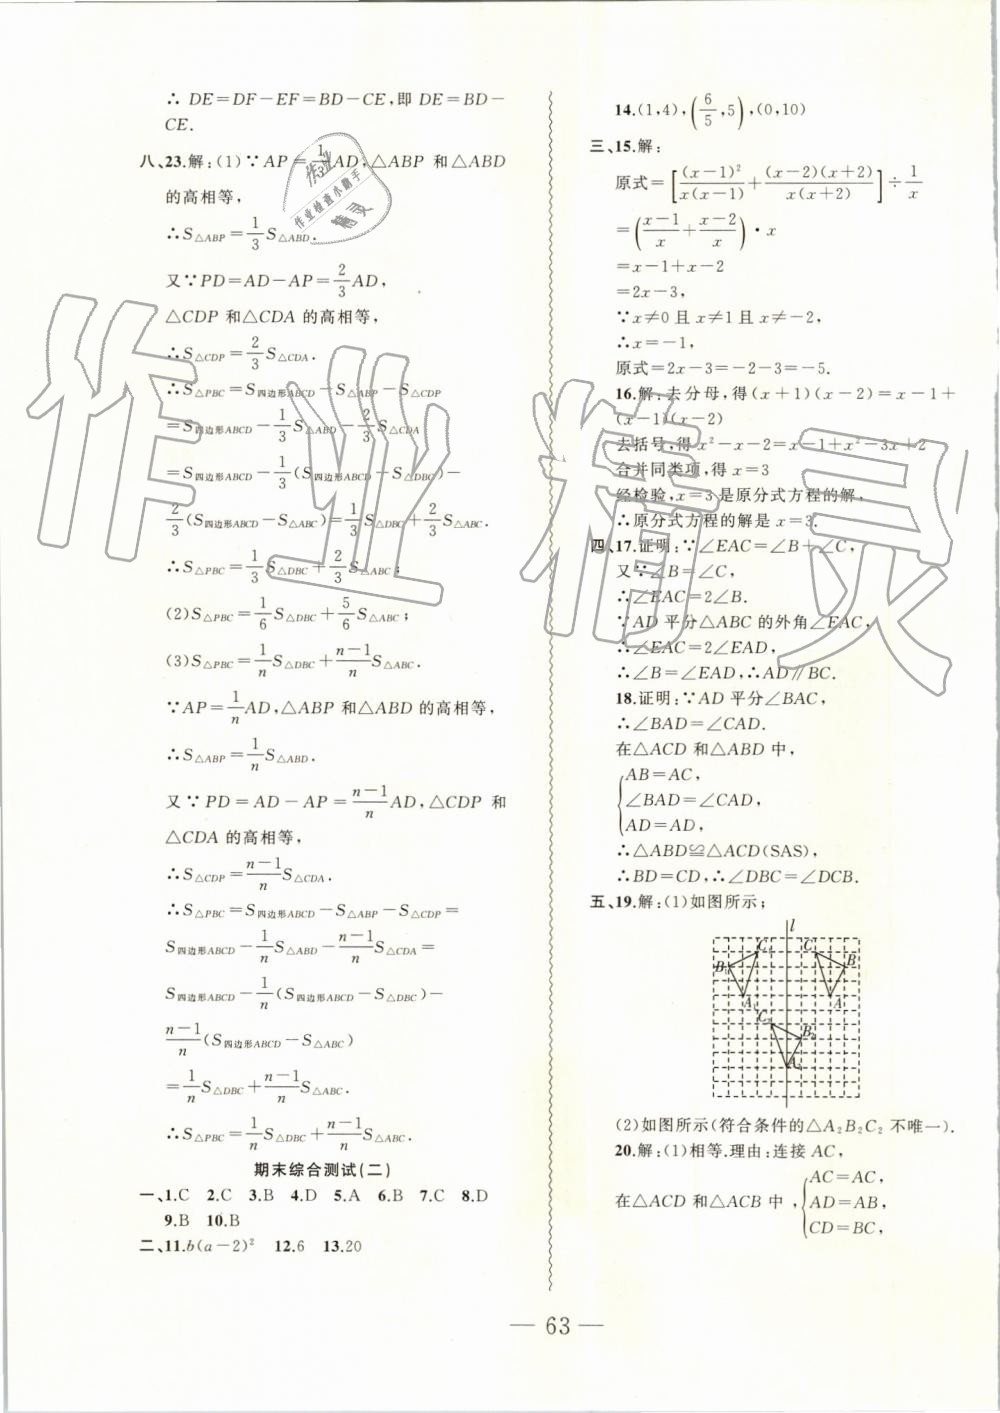 ∴ DE=DF－EF=BD－CE,即 DE=BD－
CE.
八、23.解:(1)∵AP=1/3AD,△ABP 和△ABD
的高相等,
∴S△ABP=1/3S△ABD.
又∵PD=AD－AP=2/3AD,
△CDP 和△CDA 的高相等,
∴S△CDP=2/3S△CDA.
∴S△PBC=S四边形ABCD－S△ABP－S△CDP
=S四边形ABCD－1/3S△ABD－2/3S△CDA
=S四边形ABCD－1/3(S四边形ABCD－S△DBC)－
2/3(S四边形ABCD－S△ABC)=1/3S△DBC+2/3S△ABC.
∴S△PBC=1/3S△DBC+2/3S△ABC;
(2)S△PBC=1/6S△DBC+5/6S△ABC;
(3)S△PBC=1/nS△DBC+n－1/nS△ABC.
∵AP=1/nAD,△ABP 和△ABD 的高相等,
∴S△ABP=1/nS△ABD.
又∵PD=AD－AP=n－1/nAD,△CDP 和
△CDA 的高相等,
∴S△CDP=n－1/nS△CDA.
∴S△PBC=S四边形ABCD－S△ABP－S△CDP=
S四边形ABCD－1/nS△ABD－n－1/nS△CDA=
S四边形ABCD－1/n(S四边形ABCD－S△DBC)－
n－1/n(S四边形ABCD－S△ABC)
=1/nS△DBC+n－1/nS△ABC.
∴S△PBC=1/nS△DBC+n－1/nS△ABC.
期末综合测试(二)
一、1.C 2.C 3.B 4.D 5.A 6.B 7.C 8.D
9.B 10.B
二、11.b(a－2)² 12.6 13.20
14.(1,4),(6/5,5),(0,10)
三、15.解:
原式=[(x－1)²/x(x－1)+(x－2)(x+2)/x(x+2)]÷1/x
=(x－1/x+x－2/x)·x
=x－1+x－2
=2x－3,
∵x≠0 且 x≠1 且 x≠－2,
∴x=－1,
原式=2x－3=－2－3=－5.
16.解:去分母,得(x+1)(x－2)=x－1+
(x－1)(x－2)
去括号,得 x²－x－2=x－1+x²－3x+2
合并同类项,得 x=3
经检验,x=3 是原分式方程的解,
∴原分式方程的解是 x=3.
四、17.证明:∵∠EAC=∠B+∠C,
又∵∠B=∠C,
∴∠EAC=2∠B.
∵AD 平分△ABC 的外角∠EAC,
∴∠EAC=2∠EAD,
∴∠B=∠EAD,∴AD∥BC.
18.证明:∵AD 平分∠BAC,
∴∠BAD=∠CAD.
在△ACD 和△ABD 中,
AB=AC,
∠BAD=∠CAD,
AD=AD,
∴△ABD≌△ACD(SAS),
∴BD=CD,∴∠DBC=∠DCB.
五、19.解:(1)如图所示;
l
C₁ C
B₁ B
A₁ A
C₂
B₂
A₂
(2)如图所示(符合条件的△A₂B₂C₂ 不唯一).
20.解:(1)相等.理由:连接 AC,
在△ACD 和△ACB 中,
AC=AC,
AD=AB,
CD=BC,
— 63 —
作业精灵
作业
作业检查小助手
精灵